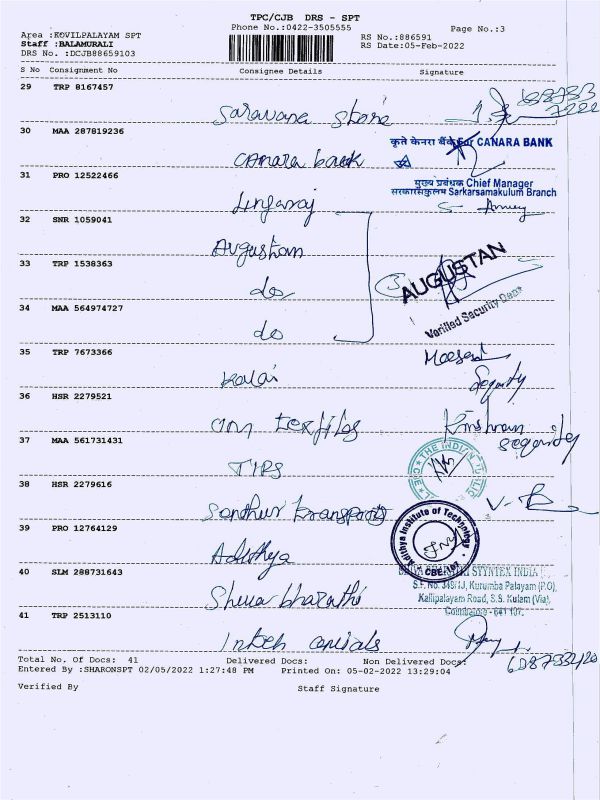 TPC/CJB DRS - SPT
Phone No.:0422-3505555
Page No.:3
Area :KOVILPALAYAM SPT
Staff :BALAMURALI
DRS No. :DCJB88659103
RS No.:886591
RS Date:05-Feb-2022
S No Consignment No Consignee Details Signature
29 TRP 8167457
Saravana store
30 MAA 287819236
canara bank
कृते केनरा बैंक For CANARA BANK
31 PRO 12522466
मुख्य प्रबंधक Chief Manager
सरकारसामकुलम Sarkarsamakulum Branch
Lingaraj
32 SNR 1059041
Augustan
33 TRP 1538363
do
AUGUSTAN
Verified Security Dept
34 MAA 564974727
do
35 TRP 7673366
Kalai
36 HSR 2279521
textiles
37 MAA 561731431
TIPS
THE INDIAN PUBLIC
38 HSR 2279616
Sandhur transports
39 PRO 12764129
Adithya
Adithya Institute of Technology
CBE-107
40 SLM 288731643
Shiva bharathi
SHIVA BHARATHI STYNTEX INDIA
S.F. No. 348/1J, Kurumba Palayam (P.O),
Kallipalayam Road, S.S. Kulam (Via),
Coimbatore - 641 107.
41 TRP 2513110
Intech capitals
Total No. Of Docs: 41 Delivered Docs: Non Delivered Docs:
Entered By :SHARONSPT 02/05/2022 1:27:48 PM Printed On: 05-02-2022 13:29:04
Verified By Staff Signature